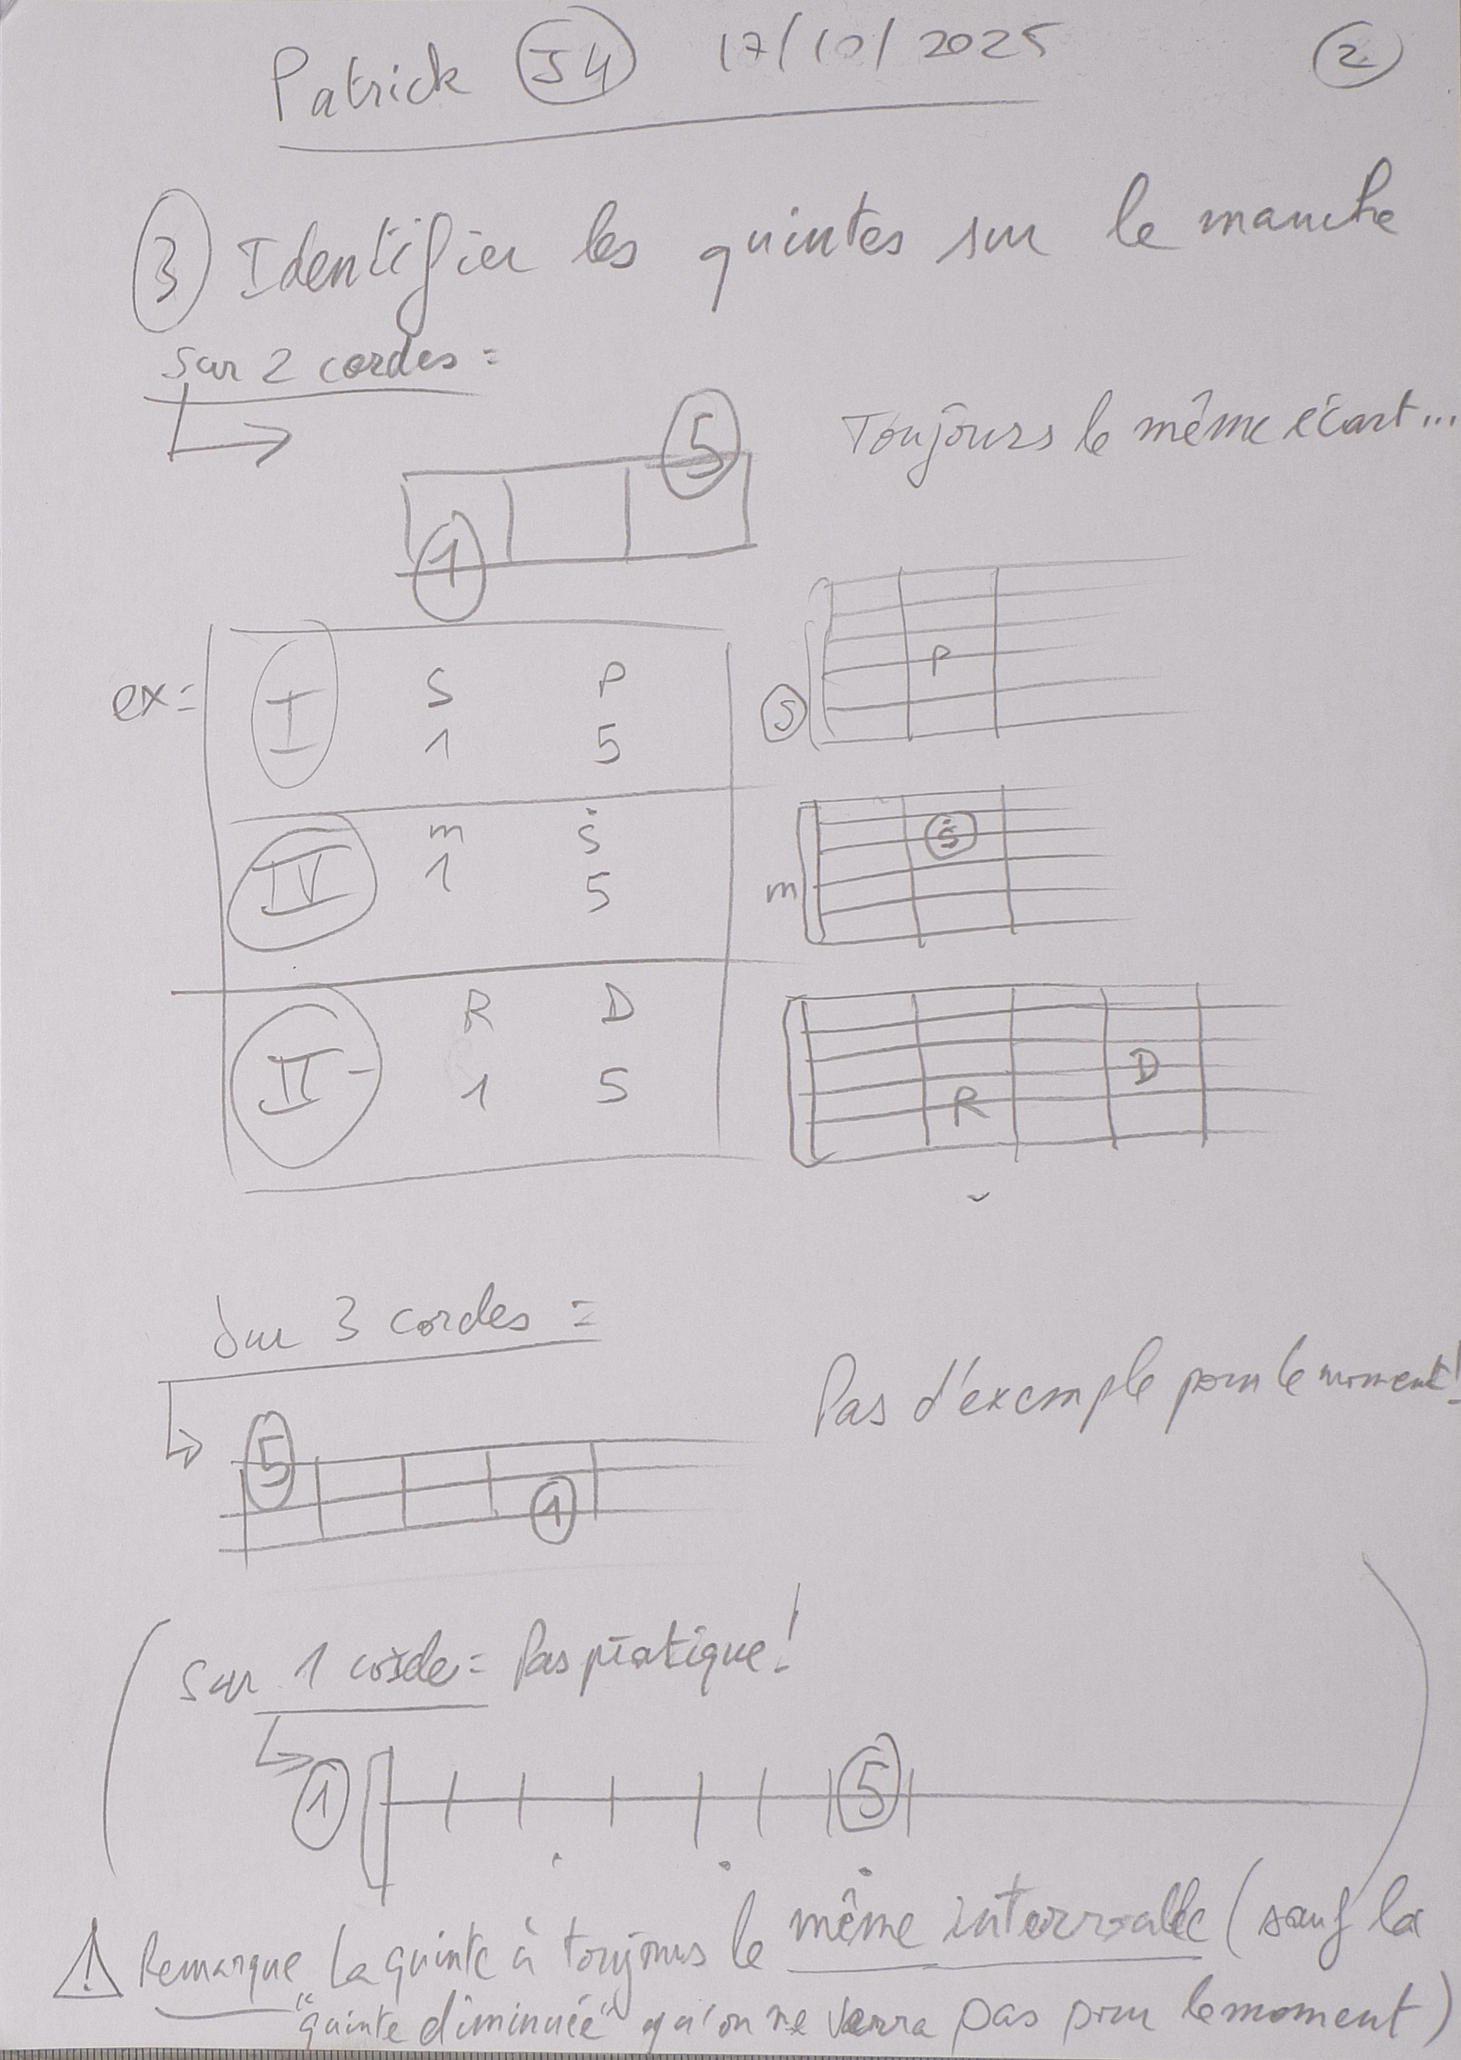 Patrick J4 17/10/2025 2
3 Identifier les quintes sur le manche
sur 2 cordes =
Toujours le même écart...
5
1
ex = I S P
1 5
P
S
IV m Ṡ
1 5
Ṡ
m
II- R D
1 5
D
R
Sur 3 cordes =
Pas d'exemple pour le moment!
5
1
Sur 1 corde = Pas pratique!
1 5
! Remarque La quinte à toujours le même intervalle (sauf la
"quinte diminuée" qu'on ne verra pas pour le moment)